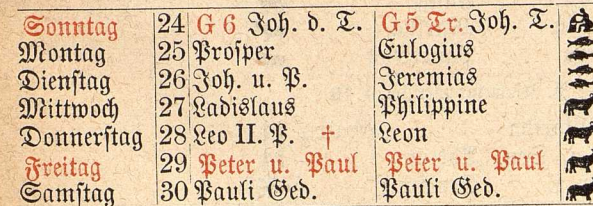 Sonntag 24 G 6 Joh. d. T. G 5 Tr. Joh. T.
Montag 25 Prosper Eulogius
Dienstag 26 Joh. u. P. Jeremias
Mittwoch 27 Ladislaus Philippine
Donnerstag 28 Leo II. P. † Leon
Freitag 29 Peter u. Paul Peter u. Paul
Samstag 30 Pauli Ged. Pauli Ged.